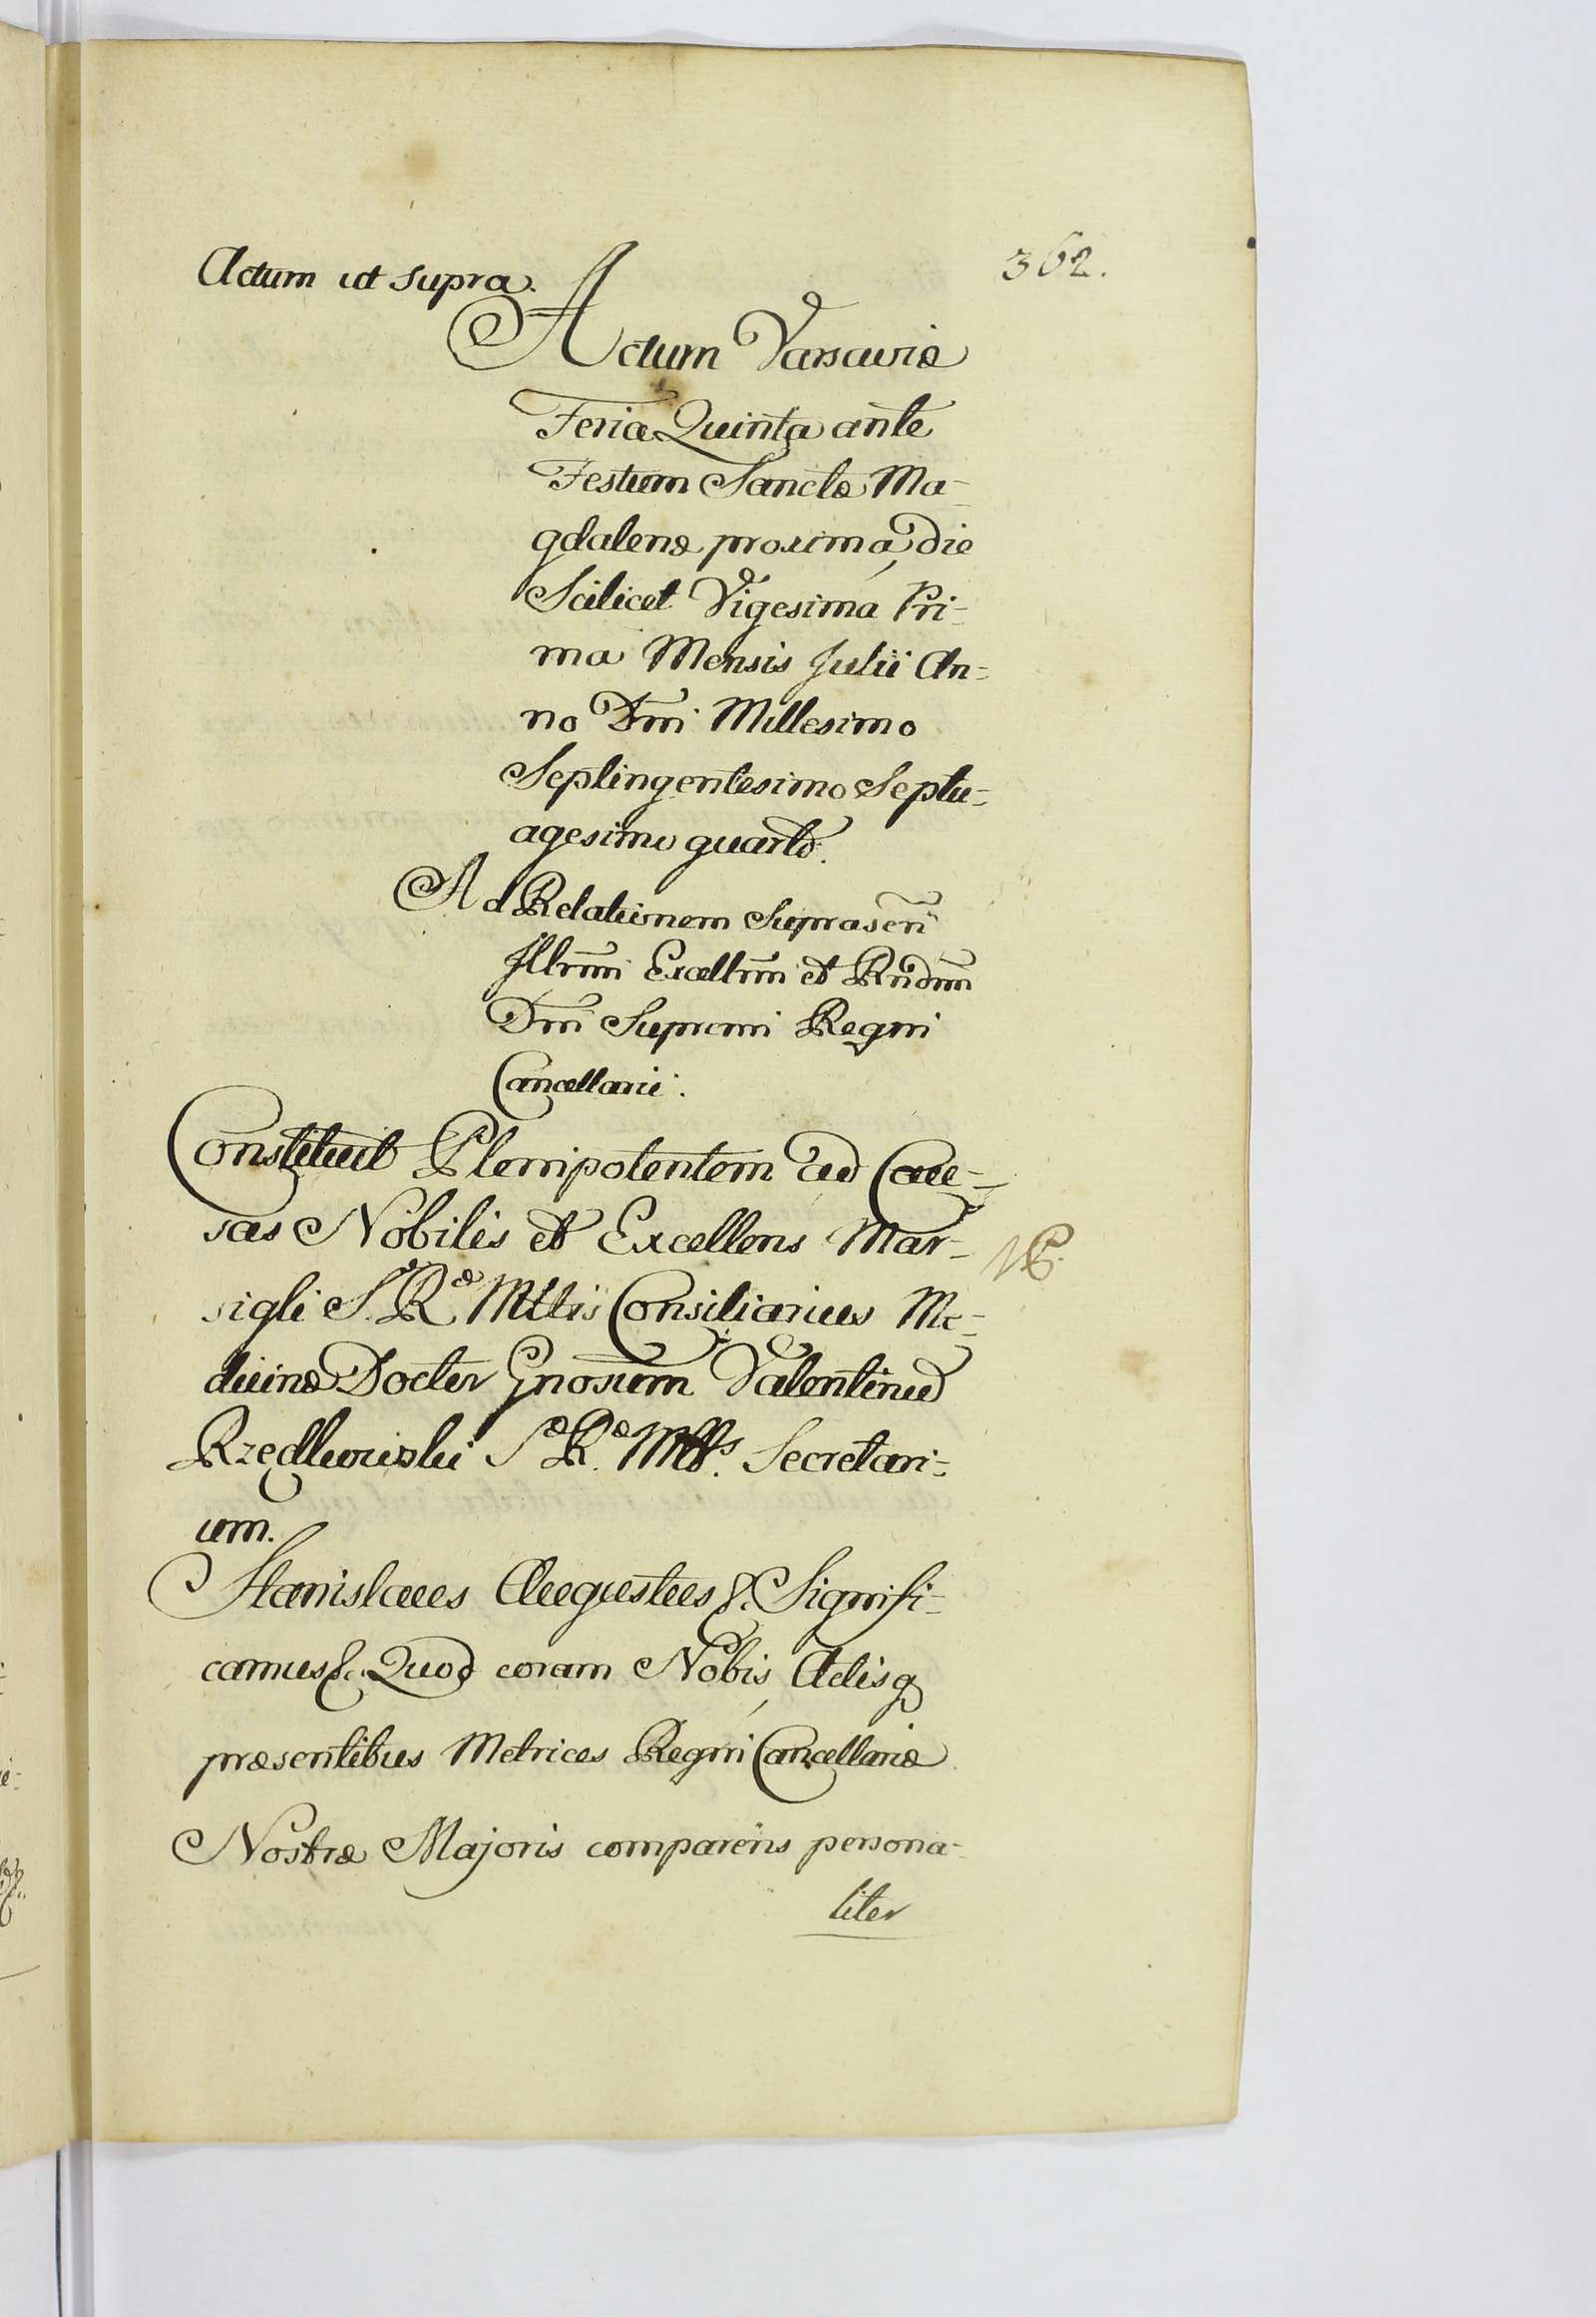 362.
Actum ut supra.
Actum Varsaviæ
Feria Quinta ante
Festum Sanctæ Ma-
gdalenæ proximá, die
Scilicet Vigesima Pri-
ma Mensis Julii An-
no Dñi Millesimo
Septingentesimo Septu-
agesimo quarto.
Ad Relationem Suprascrñ
Illrmi Excellmi et Rndmi
Dñi Supremi Regni
Cancellarii.
Constituit Plenipotentem ad Cau-
sas Nobilis et Excellens Mar-
sigli S. Ræ Mttis Consiliarius Me-
dicinæ Doctor Gnosum Valentinũ
Rzędkowski Sæ Ræ Mttis. Secretari-
um.
NB.
Stanislaus Augustus &. Signifi-
camus &. Quod coram Nobis, Actisq
præsentibus Metrices Regni Cancellariæ
Nostræ Majoris comparens persona-
liter